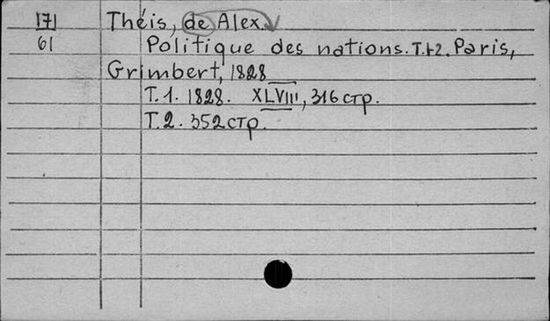 171 Théis, de Alex.
61 Politique des nations. T.1-2. Paris,
Grimbert, 1828
T.1. 1828. XLVIII, 316 стр.
T.2. 352 стр.